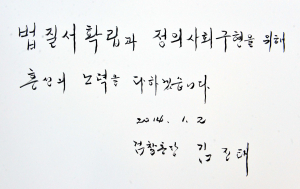 법질서 확립과 정의사회구현을 위해
혼신의 노력을 다하겠습니다.
2014. 1. 2
검찰총장 김진태